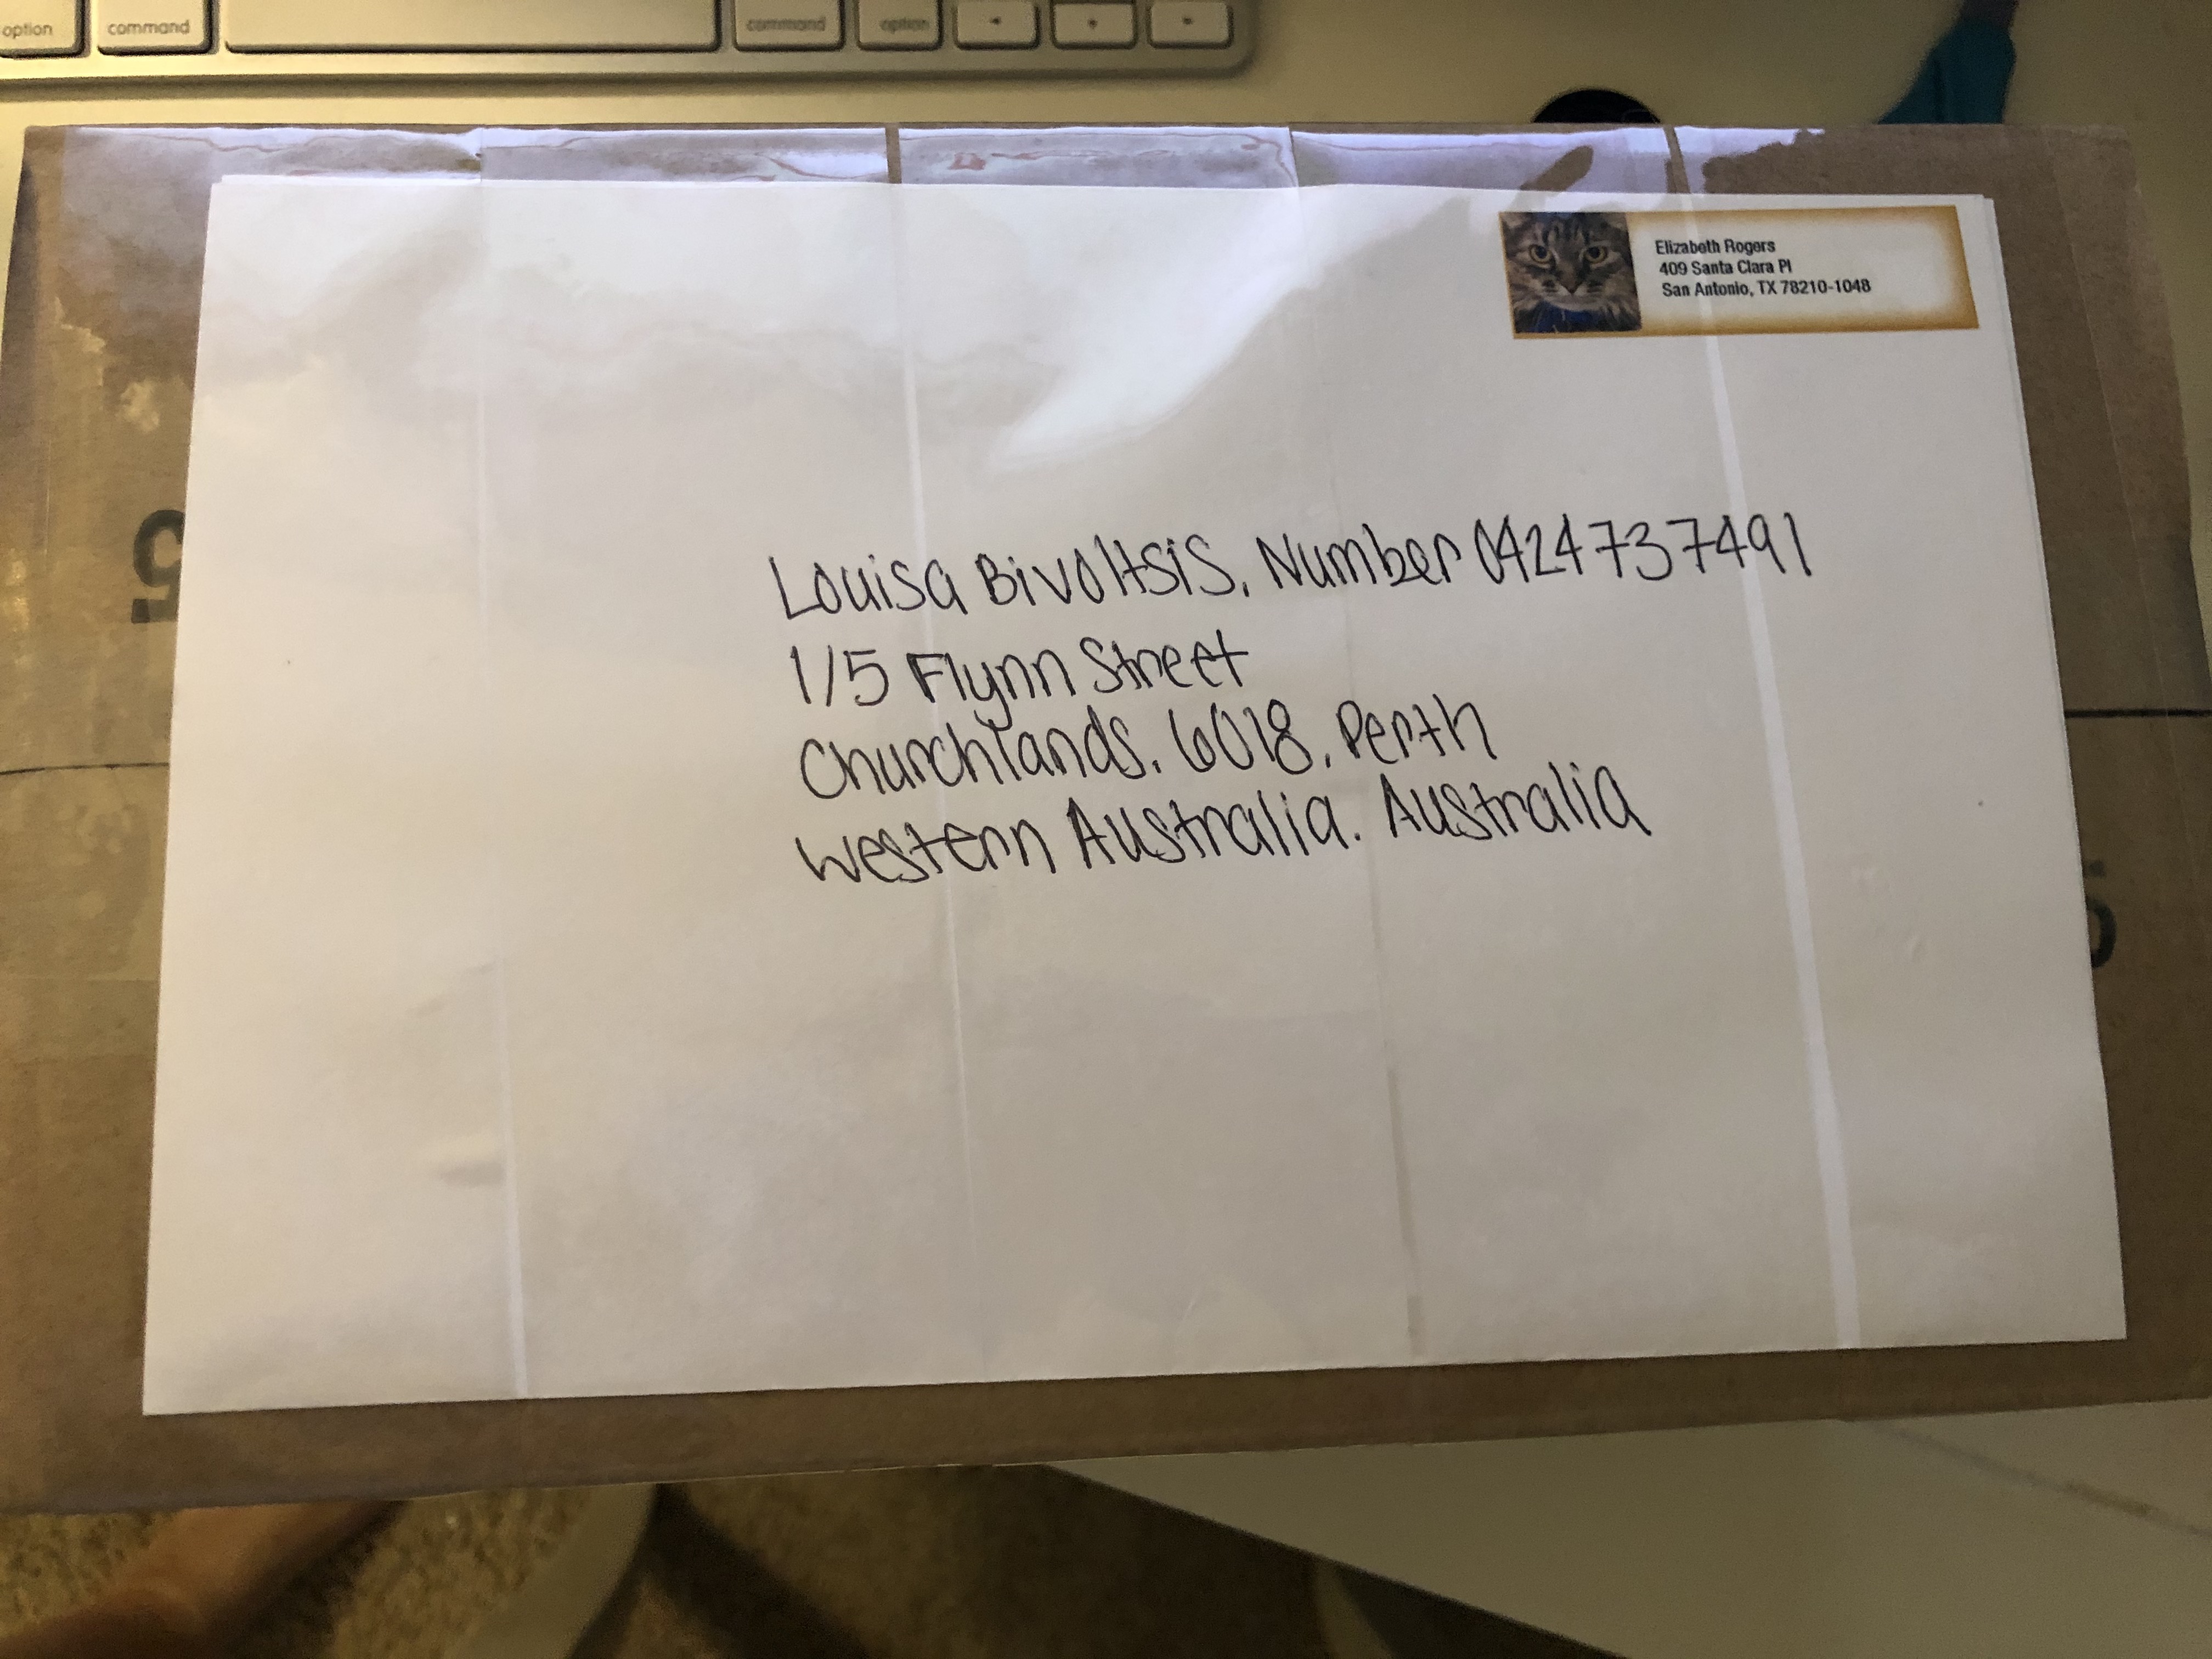 option command command option
Elizabeth Rogers
409 Santa Clara Pl
San Antonio, TX 78210-1048
Louisa Bivoltsis, Number 0424737491
1/5 Flynn Street
Churchlands, 6018, Perth
Western Australia. Australia
5